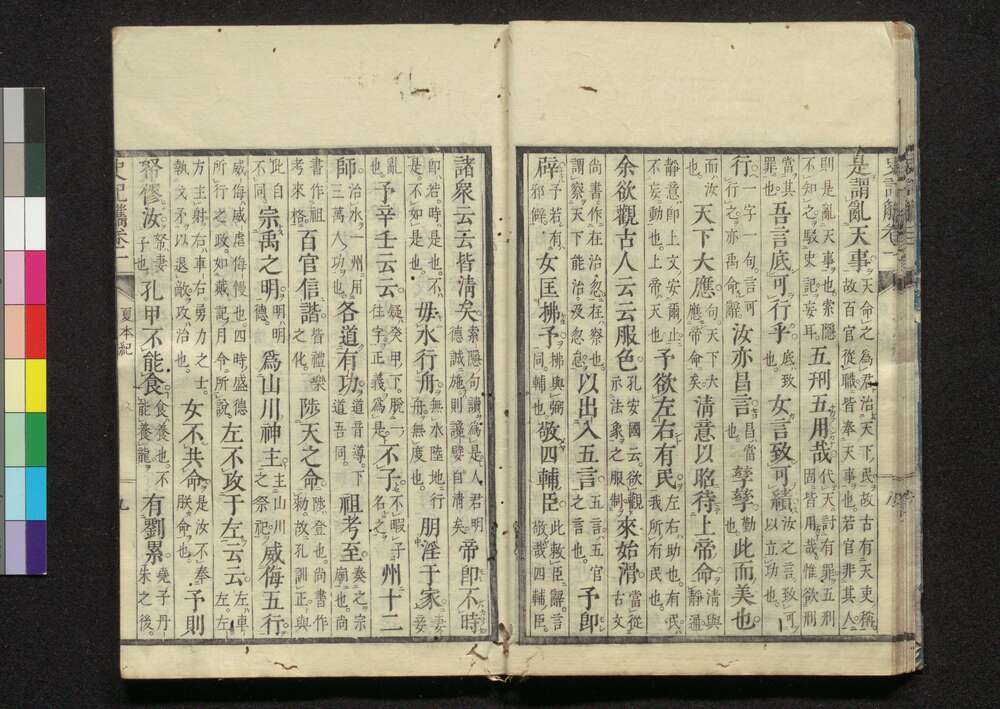 是謂亂天事 天命之爲君治天下民故古有天吏稱 故百官從職皆奉天事也若官非其人
則是亂天事也索隱不知之駁史記妄耳 五刑五用哉 代天討有罪五刑固皆用哉惟欲刑
當其罪也 吾言底可行乎 底致也 女言致可績 汝之言致可以立功也
行 一字一句言可行之亦禹命辭 汝亦昌言 昌當也 孳孳 勤也 此而美也
而汝也 天下大應 句天下大應帝命矣 清意以昭待上帝命 清與靜通
靜意卽上文安爾止不妄動也上帝天也 予欲左右有民 左右助也有民我所有民也
余欲觀古人云云服色 孔安國云欲觀承法象之服制 來始滑 當從古文
尚書作在治忽在察也謂察天下能治及忽怠 以出入五言 五言五官之言也 予卽
辟 予若有邪僻 女匡拂予 拂與弼同輔也 敬四輔臣 此敕臣辭言敬哉四輔臣
諸衆云云皆清矣 索隱句讀爲是人君明德誠施則讒嬖自清矣 帝卽不時
卽若時是也不是不如是也 毋水行舟 無水陸地行舟無度也 朋淫于家 妻妾
亂也 予辛壬云云 疑癸甲下脫一往字正義爲是 不子 不暇子名之 州十二
師 治水一州用三萬人功也 各道有功 道音導下道吾同 祖考至 奏之宗廟也尚
書作祖考來格 百官信諧 皆禮樂之化 陟天之命 陟登也尚書作勅故孔訓正與
此自不同 宗禹之明 明明德 爲山川神主 主山川之祭祀 威侮五行
威侮威虐侮慢也四時盛德所行之政如戴記月令所說 左不攻于左云云 左車左左
方主射右車右勇力之士執戈矛以退敵攻治也 女不共命 是汝不奉朕命也 予則
帑僇汝 帑妻子也 孔甲不能食 食養也不能養龍 有劉累 堯子丹朱之後
史記觿卷一 夏本紀 九